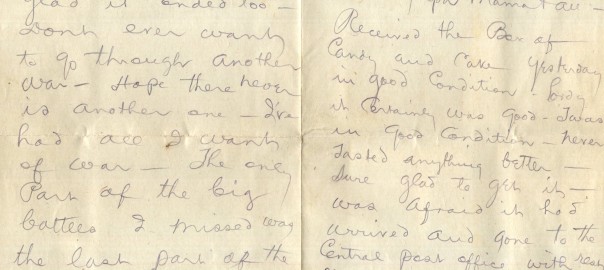 glad it ended too —
Dont ever want
to go through another
war — Hope there never
is another one — I've
had all I want
of war — The only
Part of the big
battles I missed was
the last part of the
Mama + all —
Received the Box of
Candy and Cake yesterday
in good Condition. Lordy
it Certainly was Good — Twas
in Good Condition — never
Tasted anything better —
Sure glad to get it —
was afraid it had
arrived and gone to the
Central post office with rest